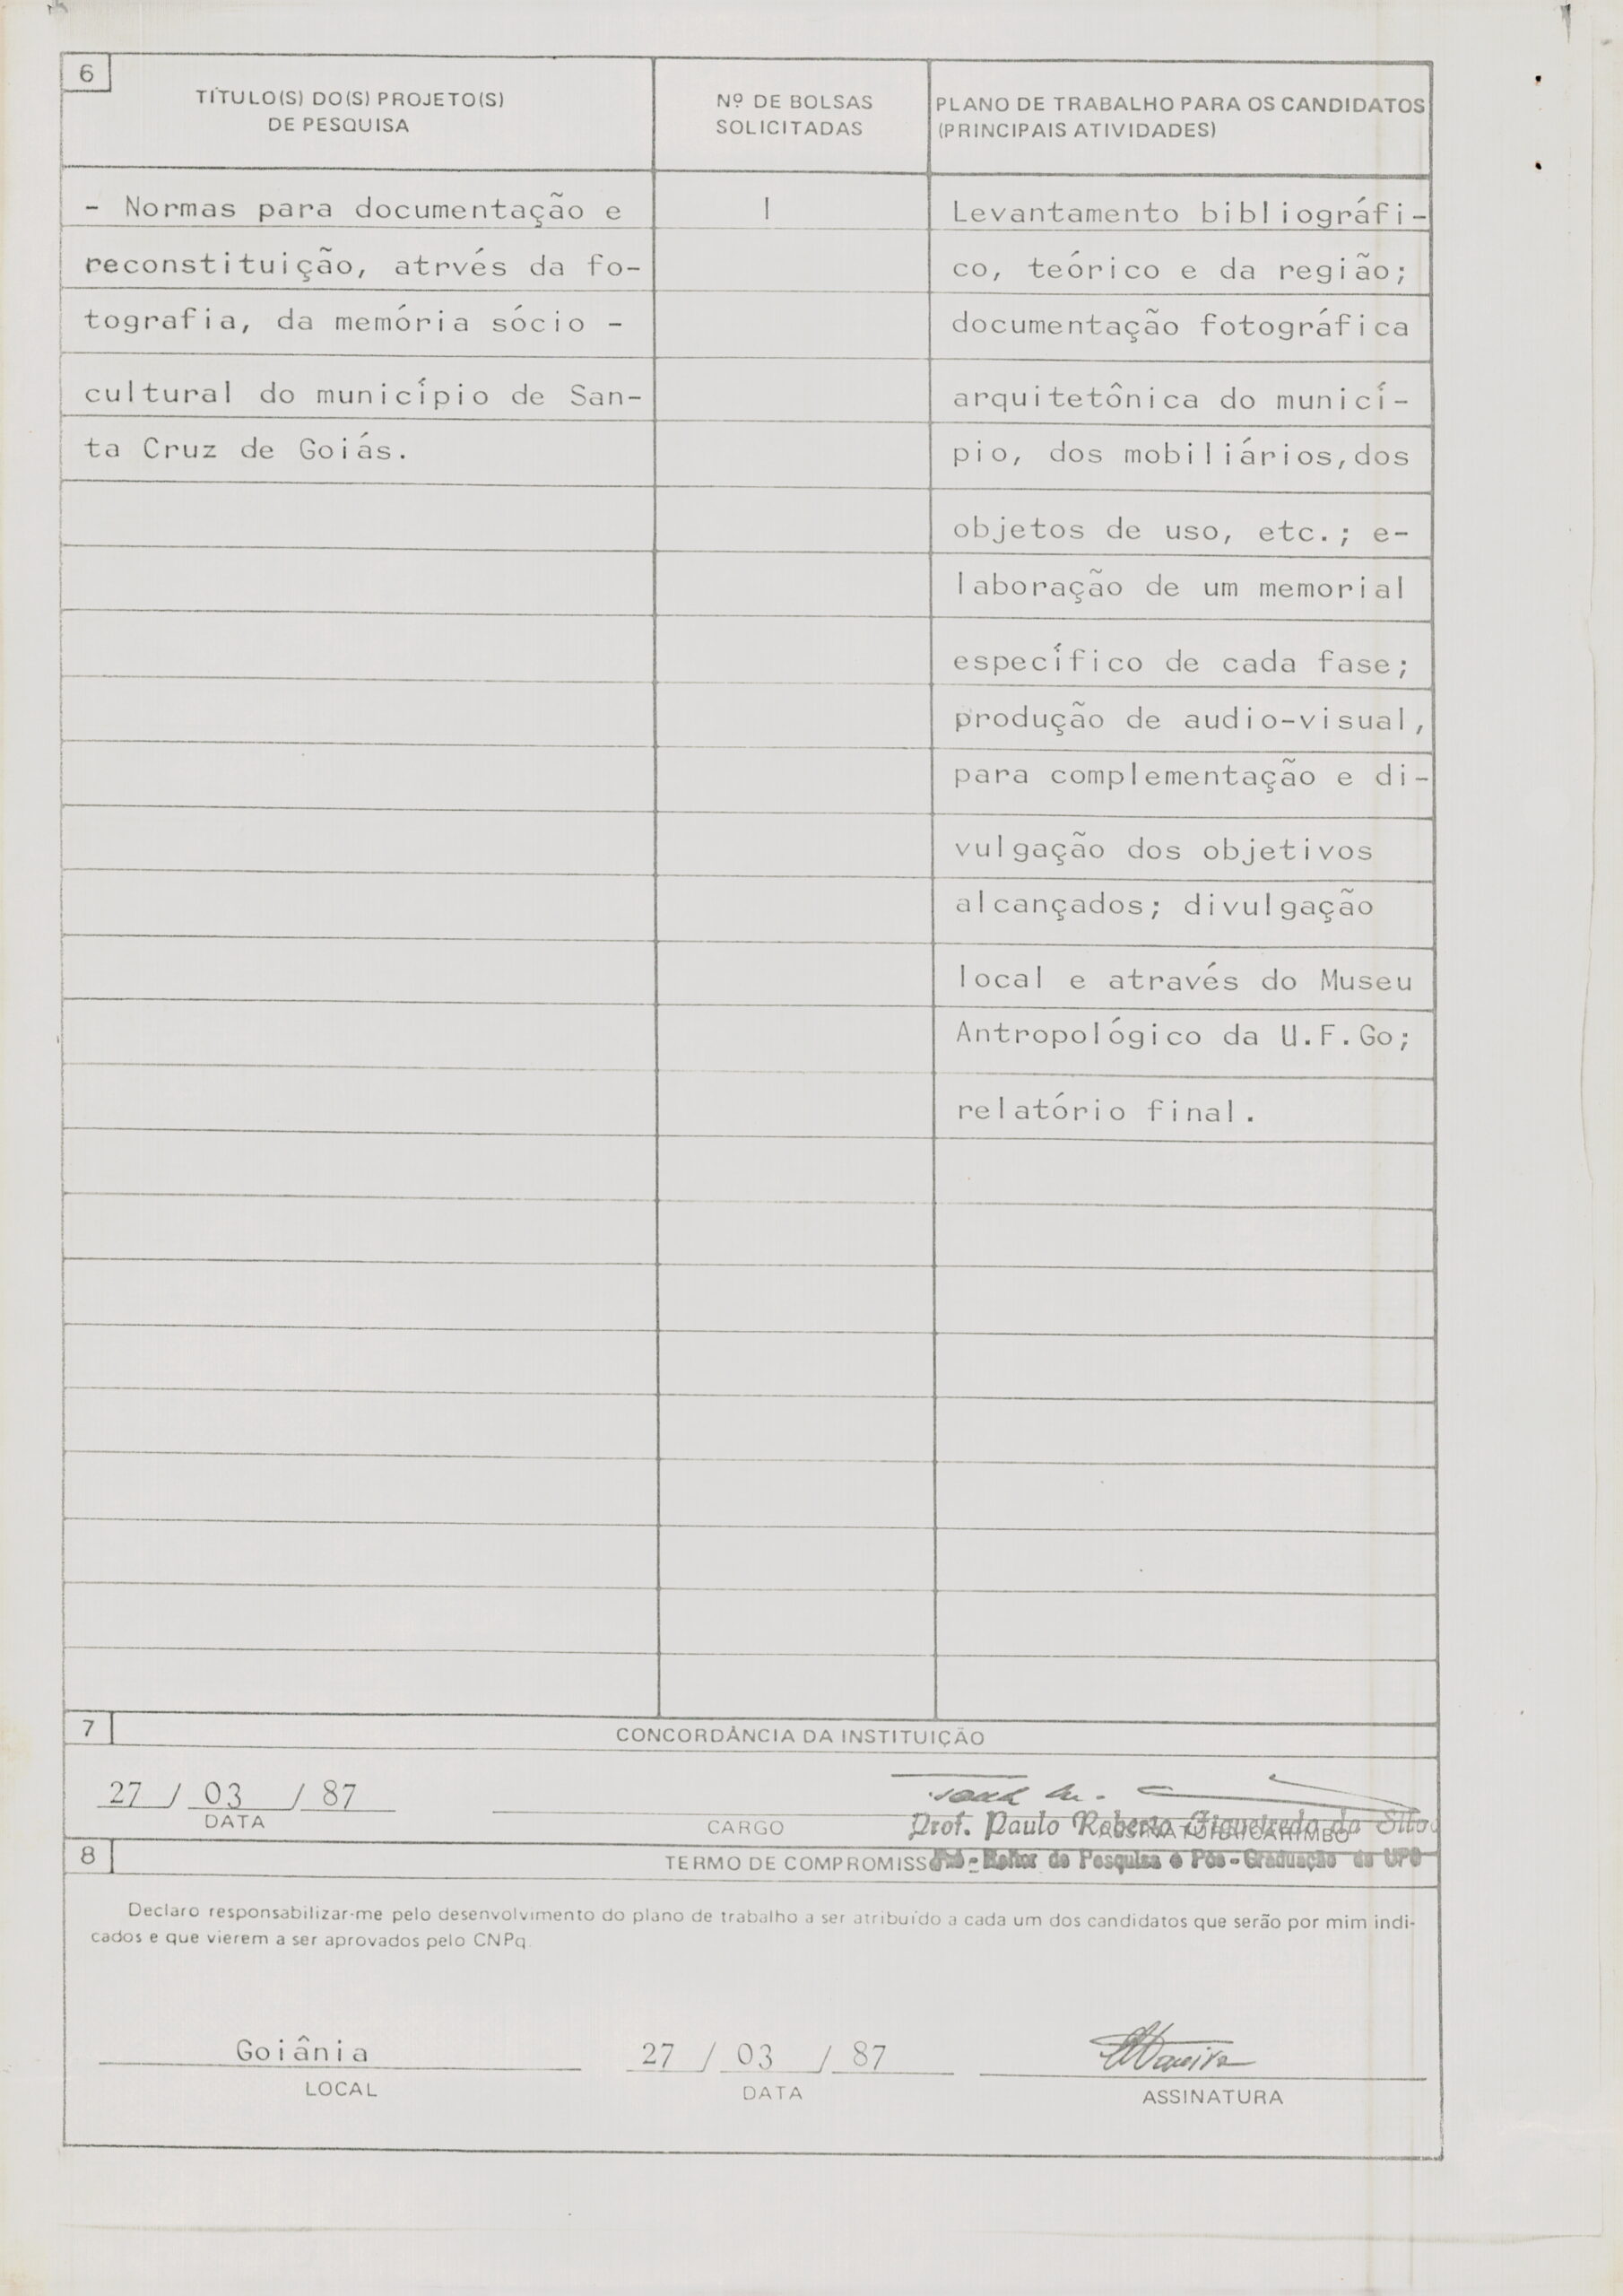 6
TÍTULO(S) DO(S) PROJETO(S)
DE PESQUISA
Nº DE BOLSAS
SOLICITADAS
PLANO DE TRABALHO PARA OS CANDIDATOS
(PRINCIPAIS ATIVIDADES)
- Normas para documentação e
reconstituição, atrvés da fo-
tografia, da memória sócio -
cultural do município de San-
ta Cruz de Goiás.
1
Levantamento bibliográfi-
co, teórico e da região;
documentação fotográfica
arquitetônica do municí-
pio, dos mobiliários,dos
objetos de uso, etc.; e-
laboração de um memorial
específico de cada fase;
produção de audio-visual,
para complementação e di-
vulgação dos objetivos
alcançados; divulgação
local e através do Museu
Antropológico da U.F.Go;
relatório final.
7
CONCORDÂNCIA DA INSTITUIÇÃO
27 / 03 / 87
DATA
CARGO
Prof. Paulo Roberto Figueiredo da Silva
8
TERMO DE COMPROMISSO
Pró-Reitor de Pesquisa e Pós-Graduação da UFG
Declaro responsabilizar-me pelo desenvolvimento do plano de trabalho a ser atribuído a cada um dos candidatos que serão por mim indi-
cados e que vierem a ser aprovados pelo CNPq.
Goiânia
LOCAL
27 / 03 / 87
DATA
ASSINATURA